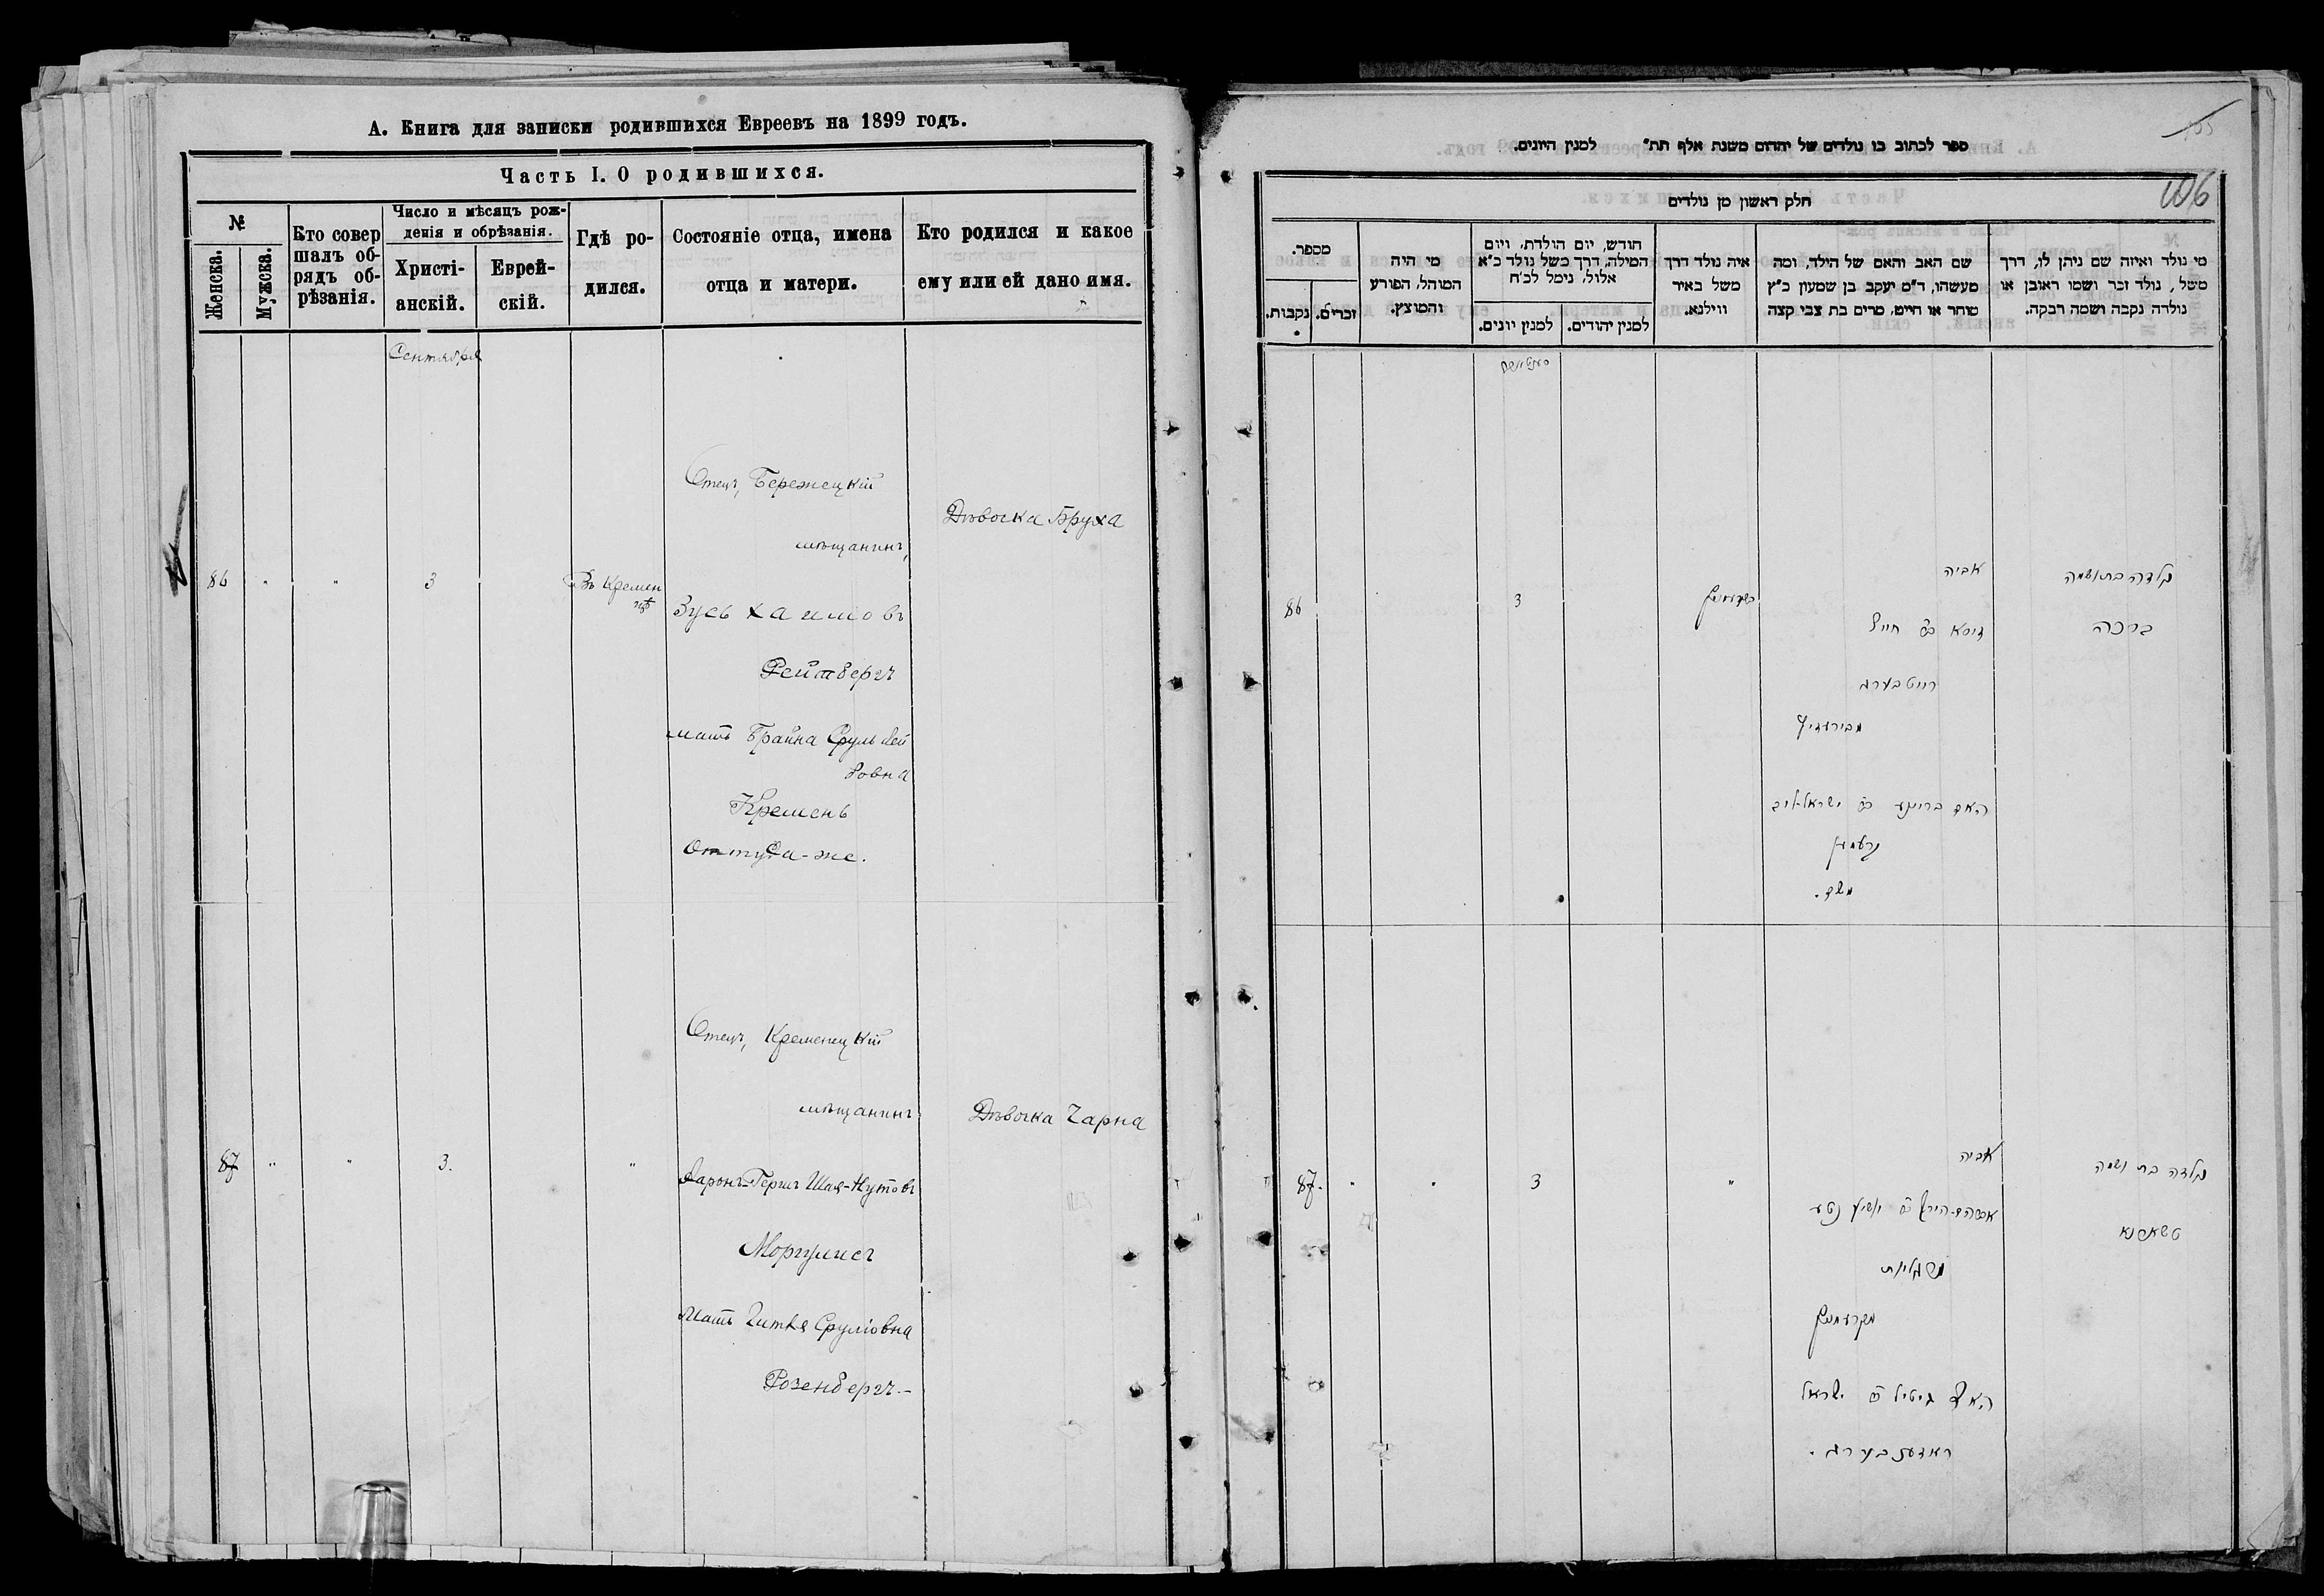 А. Книга для записки родившихся Евреевъ на 1899 годъ.
Часть I. О родившихся.
№
Женска.
Мужска.
Кто совер
шалъ об-
рядъ об-
рѣзанія.
Число и мѣсяцъ рож-
денія и обрѣзанія.
Христі-
анскій.
Еврей-
скій.
Гдѣ ро-
дился.
Состояніе отца, имена
отца и матери.
Кто родился и какое
ему или ей дано имя.
Сентября
86 " " 3
Въ Кремен
цѣ
Отецъ, Бережецкій
мѣщанинъ,
Зусь Хаимовъ
Рейтбергъ
мать Брайна Сруль Лей
бовна
Кремень
Оттуда-же.
Дѣвочка Бруха
87 " " 3. "
Отецъ, Кременецкій
мѣщанинъ
Ааронъ-Гершъ Шая-Нутовъ
Моргулисъ
Мать Гитля Сруліовна
Розенбергъ.-
Дѣвочка Чарна
ספר לכתוב בו נולדים של יהדום משנת אלף תת" למנין היונים.
106
חלק ראשון מן נולדים
מספר.
נקבות.
זכרים.
מי היה
המוהל, הפורע
והמוצץ.
חודש, יום הולדת, ויום
המילה, דרך משל נולד כ"א
אלול, נימל לכ"ח
למנין יונים.
למנין יהודים.
איה נולד דרך
משל באיר
ווילנא.
שם האב והאם של הילד, ומה
מעשהו, ד"מ יעקב בן שמעון כ"ץ
סוחר או חייט, מרים בת צבי קצה
מי נולד ואיזה שם ניתן לו, דרך
משל, נולד זכר ושמו ראובן או
נולדה נקבה ושמה רבקה.
86
3
אביה
זיסא ב"ר חיים
רייטבערג
האם בריינע ב"ר ישראל-ליב
קרעמין
משם.
נולדה בת ושמה
ברכה
87. " " 3 "
אביה
נטע
מקרעמניץ
האם גיטיל ב"ר ישראל
ראזענבערג.
נולדה בת ושמה
טשארנא